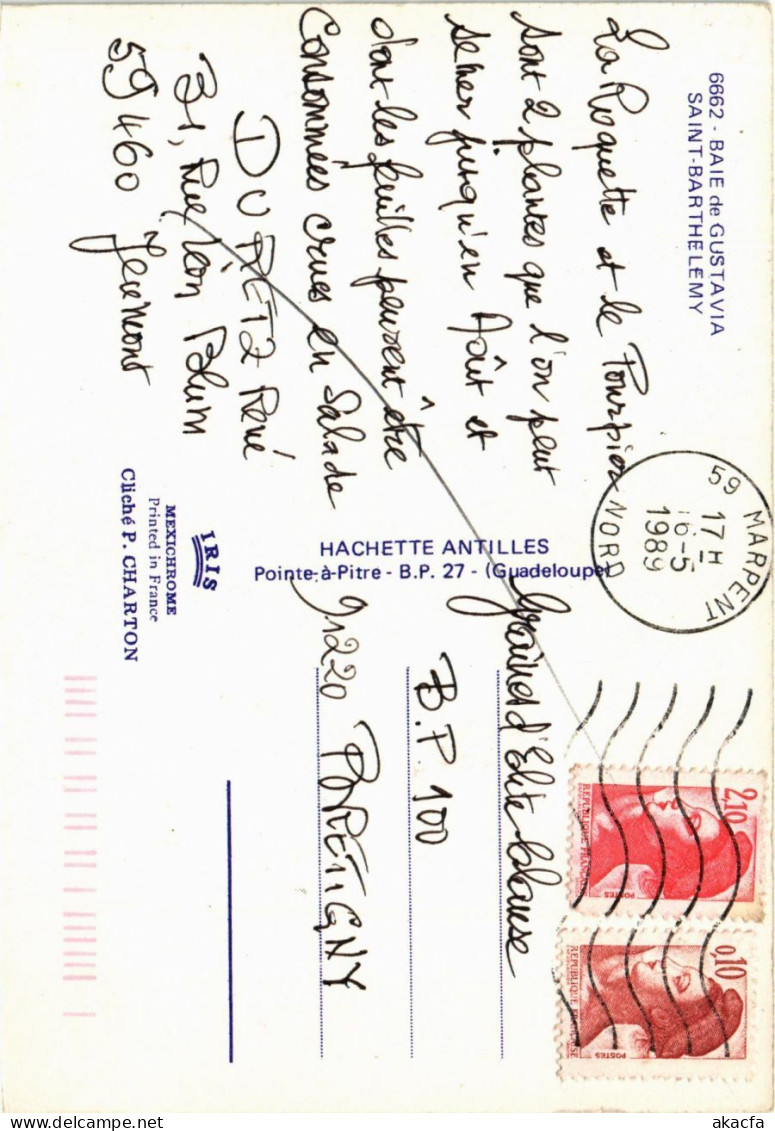 6662 - BAIE de GUSTAVIA
SAINT-BARTHELEMY
La Roquette et le Pourpier
sont 2 plantes que l'on peut
semer jusqu'en Août et
dont les feuilles peuvent être
Consommées crues en Salade
DURETZ René
31, Rue Léon Blum
59460 Jeumont
IRIS
MEXICHROME
Printed in France
Cliché P. CHARTON
HACHETTE ANTILLES
Pointe-à-Pitre - B.P. 27 - (Guadeloupe)
59 MARPENT
17 H
16-5
1989
NORD
Graines d'Elite Clause
B.P. 100
91220 BRETIGNY
2,10
REPUBLIQUE FRANÇAISE
POSTES
0,10
REPUBLIQUE FRANÇAISE
POSTES
www.delcampe.net
akacfa